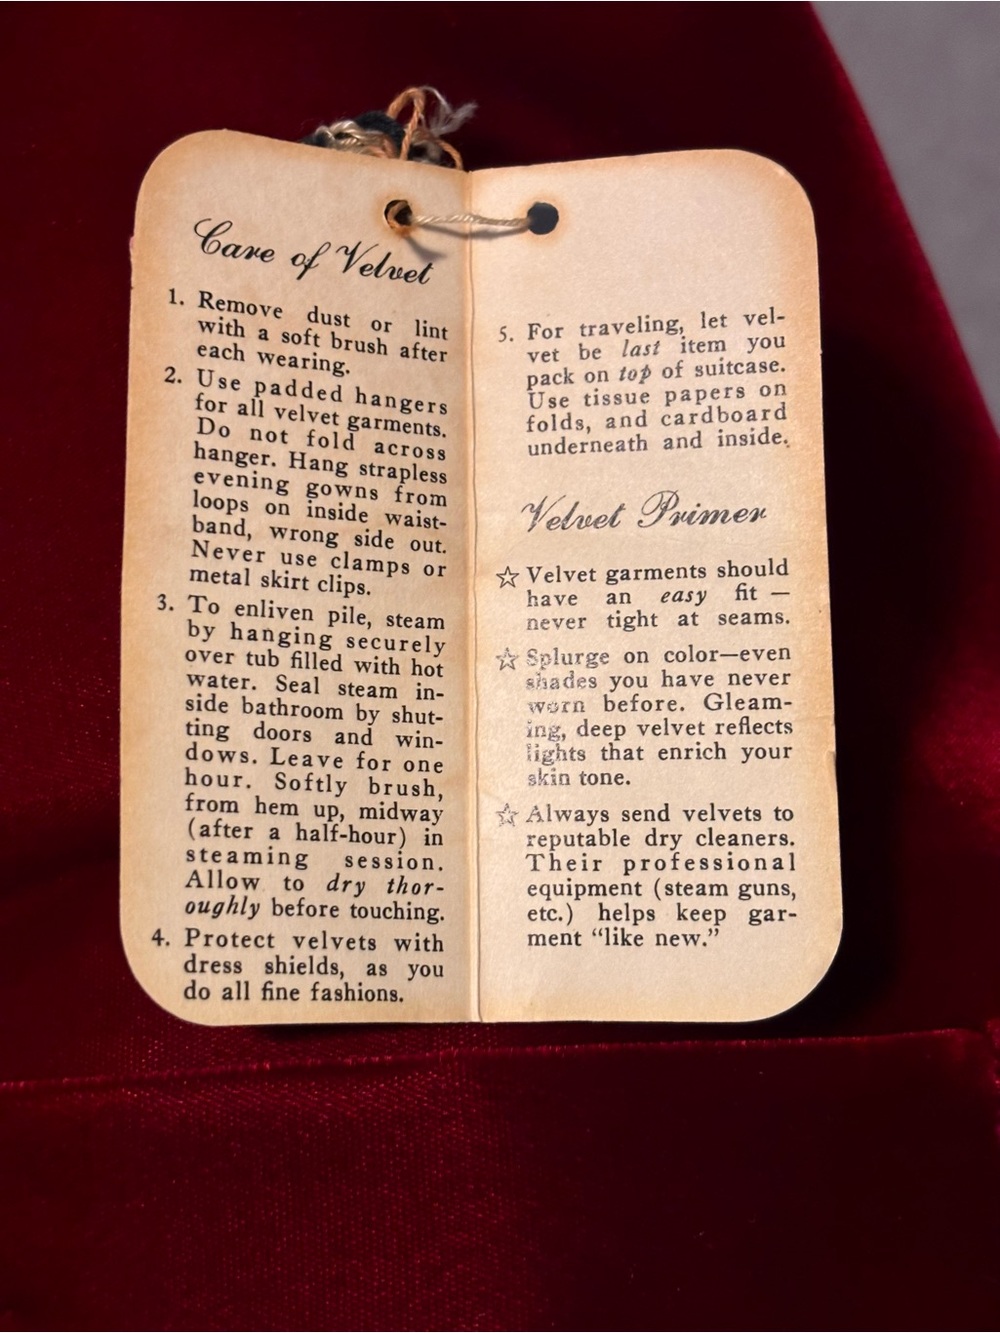 Care of Velvet
1. Remove dust or lint
with a soft brush after
each wearing.
2. Use padded hangers
for all velvet garments.
Do not fold across
hanger. Hang strapless
evening gowns from
loops on inside waist-
band, wrong side out.
Never use clamps or
metal skirt clips.
3. To enliven pile, steam
by hanging securely
over tub filled with hot
water. Seal steam in-
side bathroom by shut-
ting doors and win-
dows. Leave for one
hour. Softly brush,
from hem up, midway
(after a half-hour) in
steaming session.
Allow to dry thor-
oughly before touching.
4. Protect velvets with
dress shields, as you
do all fine fashions.
5. For traveling, let vel-
vet be last item you
pack on top of suitcase.
Use tissue papers on
folds, and cardboard
underneath and inside.
Velvet Primer
☆ Velvet garments should
have an easy fit —
never tight at seams.
☆ Splurge on color—even
shades you have never
worn before. Gleam-
ing, deep velvet reflects
lights that enrich your
skin tone.
☆ Always send velvets to
reputable dry cleaners.
Their professional
equipment (steam guns,
etc.) helps keep gar-
ment “like new.”